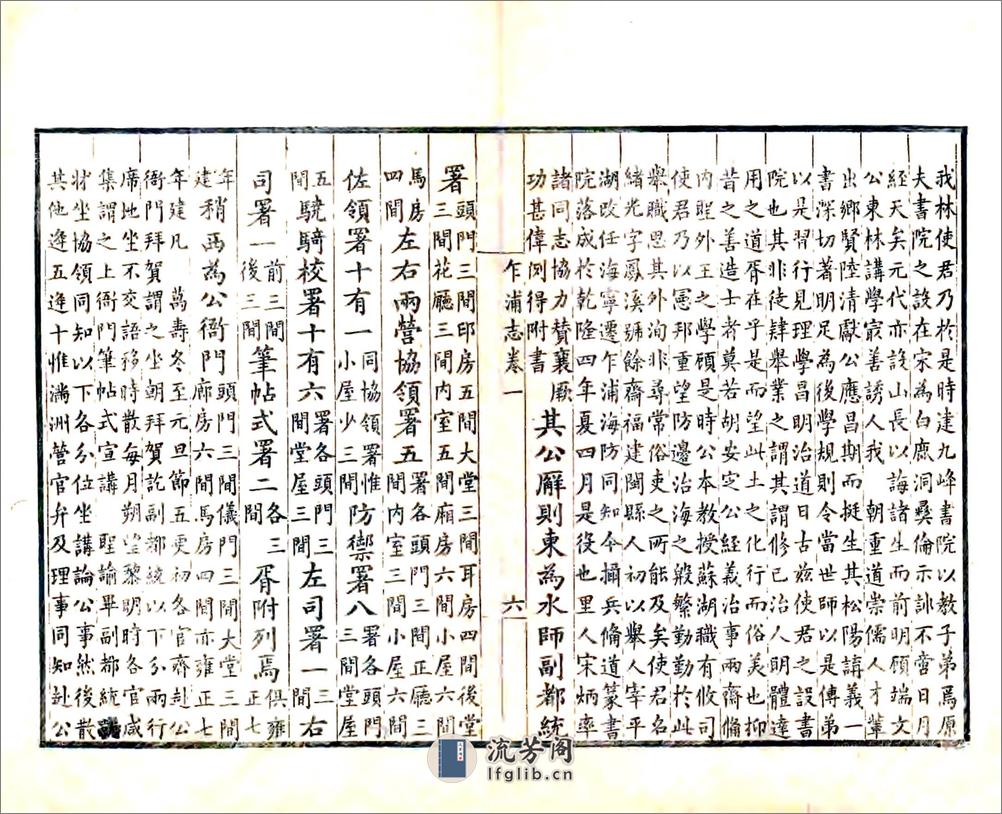 我林使君乃於是時建九峰書院以教子弟焉原
夫書院之設在宋為白鹿洞彞倫示訓不啻日月
經天矣元代亦設山長以誨諸生而前明顧端文
公東林講學㝡善誘人我 朝重道崇儒人才輩
出鄉賢陸清獻公應昌期而挺生其松陽講義一
書深切著明足為後學規則令當世師以是傳弟
以是習行見理學昌明治道日古兹使君之設書
院也其非徒肄舉業之謂其謂修已治人明體達
用之道胥在乎是而望此土之化行而俗美也抑
昔之善造士者莫若胡安定公經義治事兩齋備
内聖外王之學顧是時公本教授蘇湖職有攸司
使君乃以憲邦重望防邊治海之殷繁勤勤於此
舉職思其外洵非尋常俗吏之所能及矣使君名
緒光字鳳溪號餘齋福建閩縣人初以舉人宰平
湖改任海寧遷乍浦海防同知今攝兵備道篆書
院落成於乾隆四年夏四月是役也里人宋炳率
諸同志協力贊襄厥功甚偉例得附書 其公廨則東為水師副都統
乍浦志卷一 六
署 頭門三間印房五間大堂三間耳房四間後堂三間花廳三間内室五間廂房六間小屋六間
馬房四間 左右兩營協領署五 署各頭門三間正廳三間内室三間小屋六間
佐領署十有一 同協領署惟小屋少三間 防禦署八 署各頭門三間堂屋
五間 驍騎校署十有六 署各頭門三間堂屋三間 左司署一 三間 右
司署一 前三間後三間 筆帖式署二 各三間 胥附列焉 俱雍正七
年建 稍西為公衙門 頭門三間儀門三間大堂三間廊房六間馬房四間亦雍正七
年建凡 萬壽冬至元旦節五更初各官齊赴公
衙門拜賀謂之坐朝拜賀訖副都統以下分兩行
席地坐不交語移時散每月朔望黎明時各官咸
集謂之上衙門筆帖式宣講 聖諭畢副都統
狀坐協領同知以下各分位坐講論公事然後散
其他逢五逢十惟滿洲營官弁及理事同知赴公
流芳阁
lfglib.cn